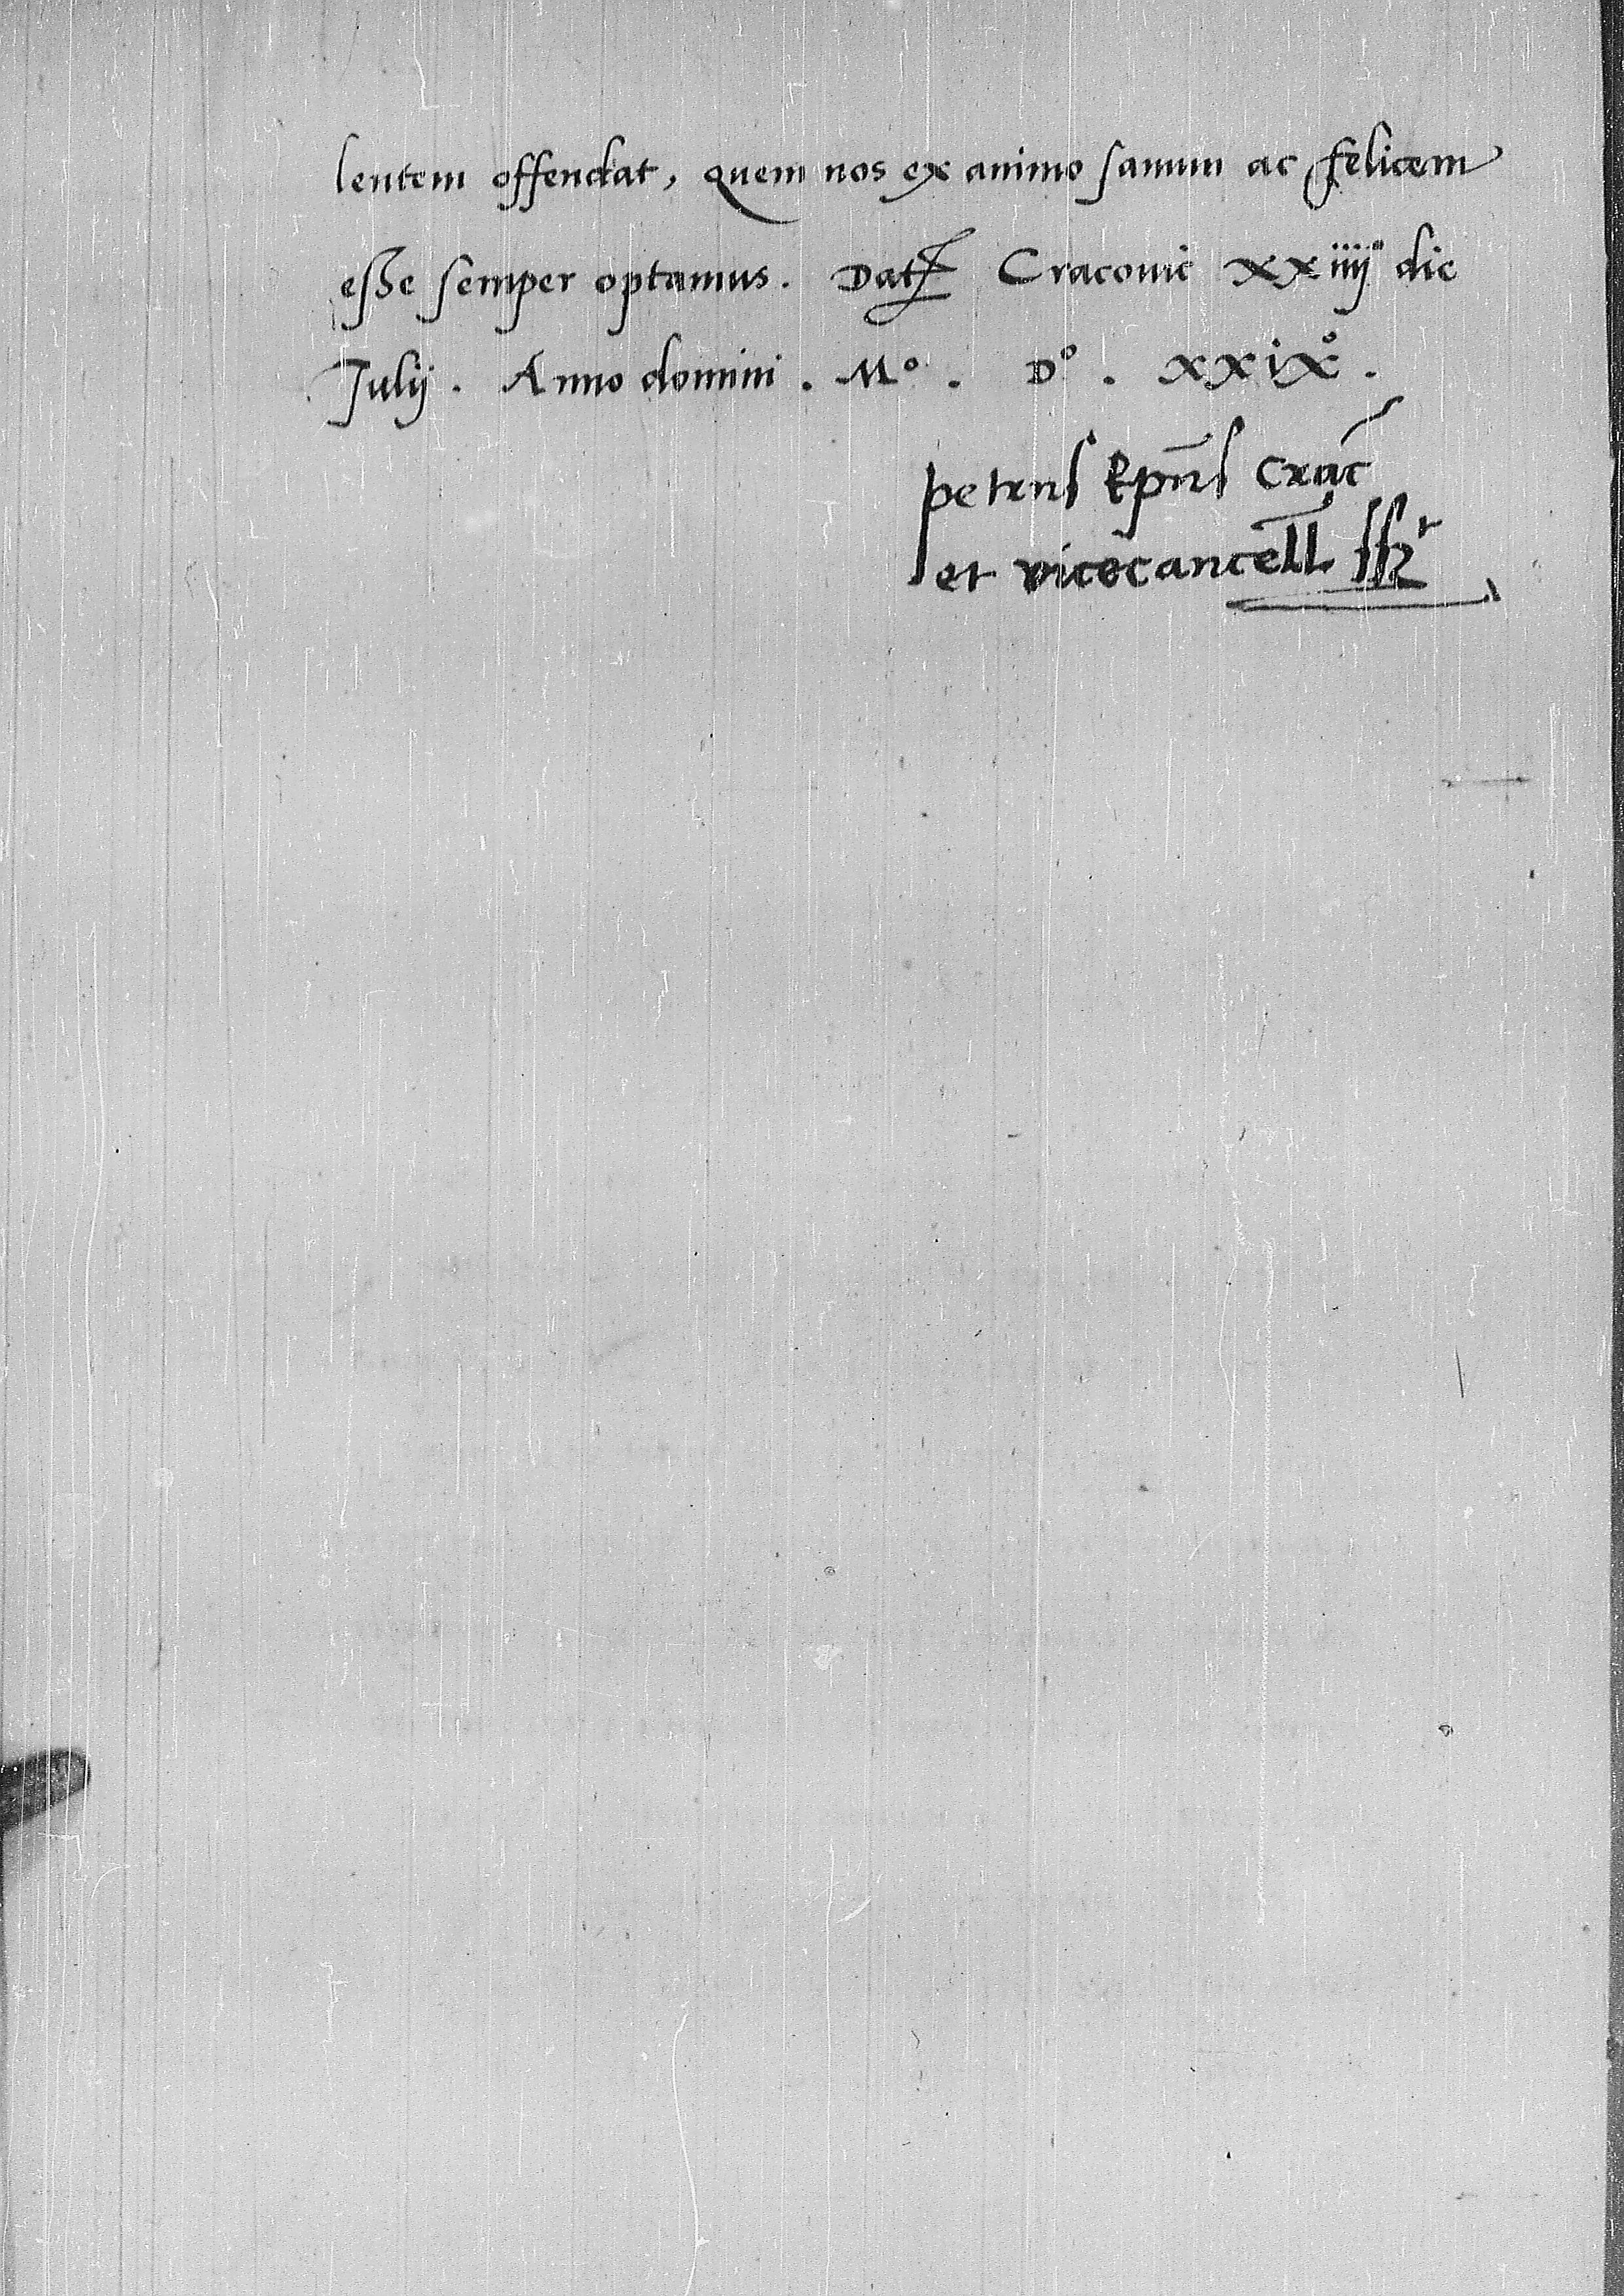 lentem offendat, quem nos ex animo sanum ac felicem
esse semper optamus. Dat Cracovie xxiiij die
Julij. Anno domini. Mº. Dº. xxixº.
petrus Epus Crac
et vicecancell sst